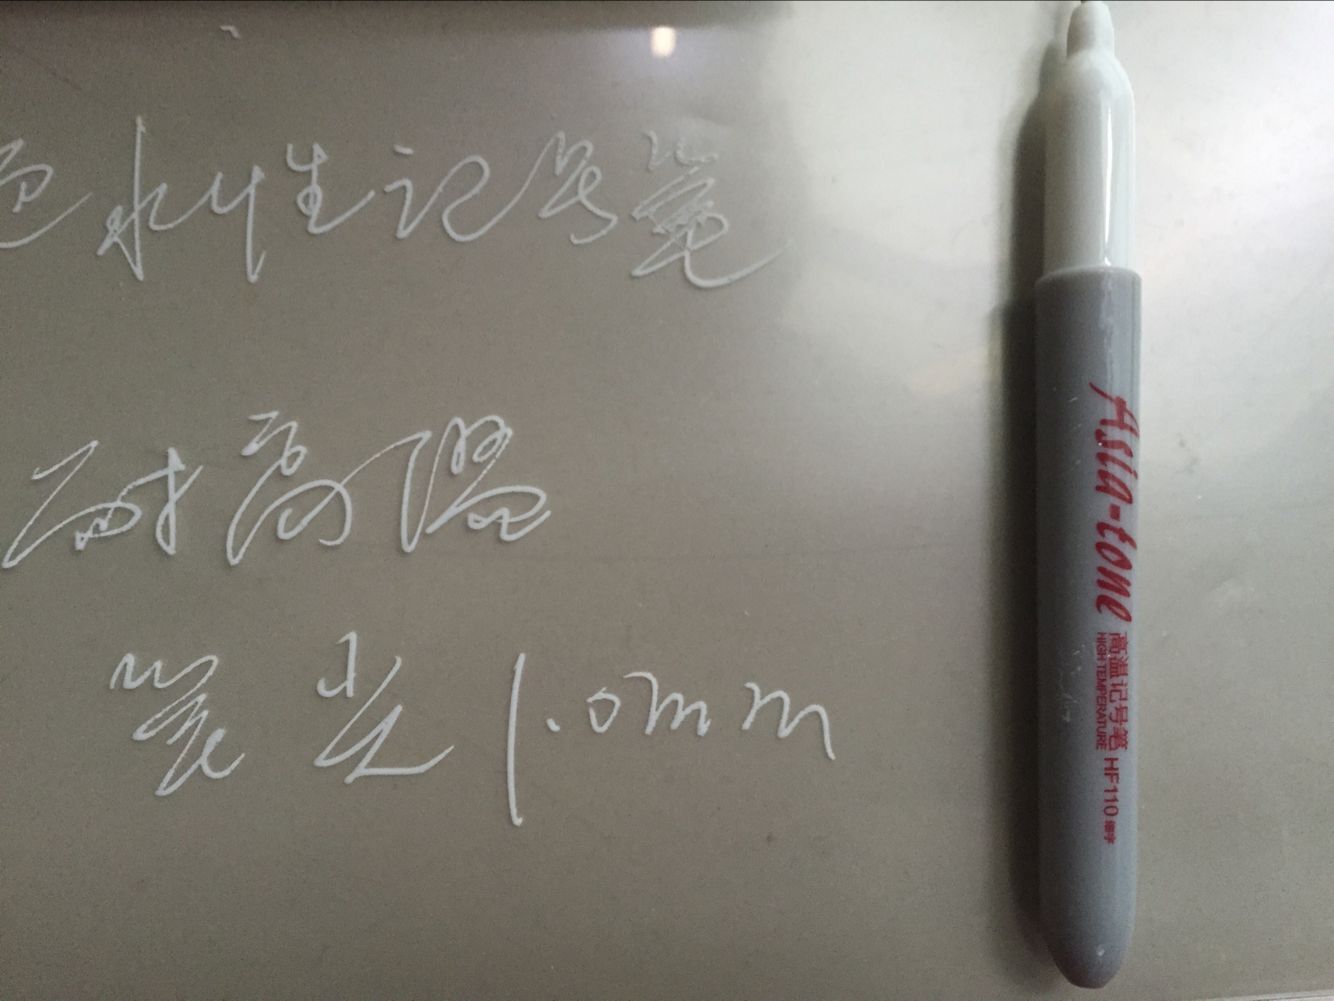 色水性记号笔
耐高温
笔尖1.0mm
Asia-tone
高温记号笔 HF110 细字
HIGH TEMPERATURE